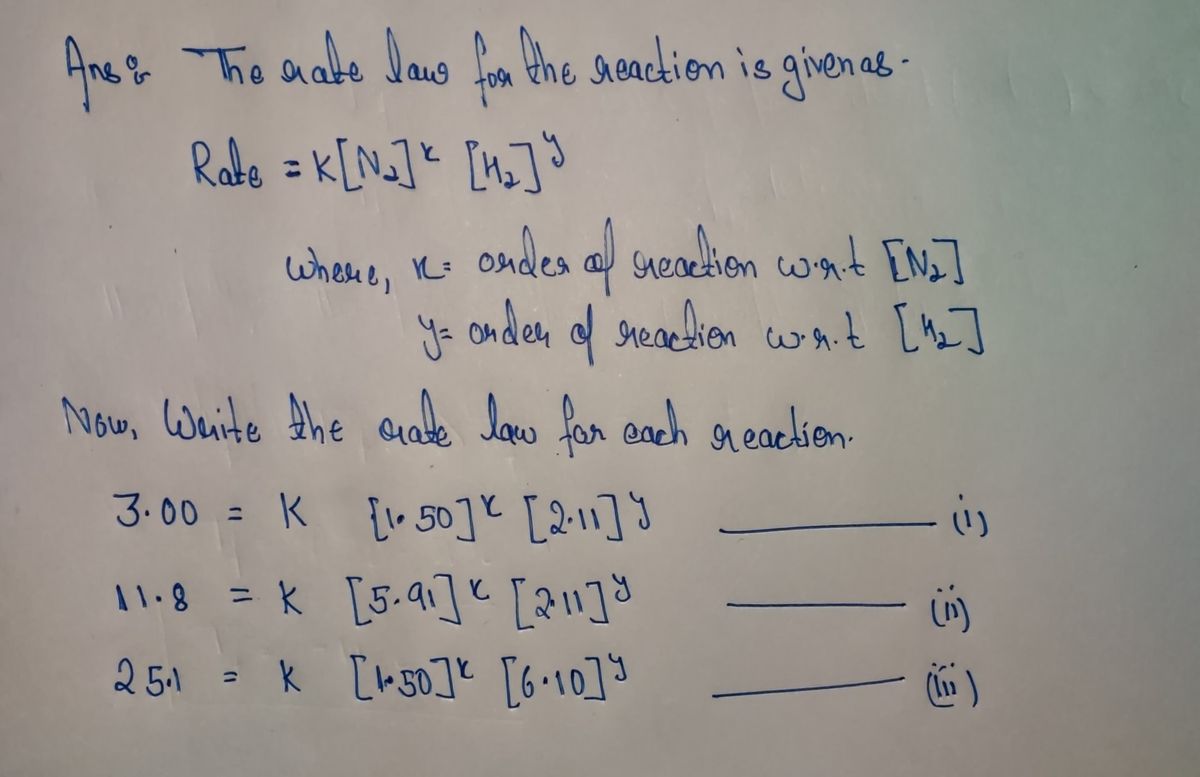 Ans: The rate law for the reaction is given as.
Rate = K[N₂]ˣ [H₂]ʸ
where, x = order of reaction w.r.t [N₂]
y = order of reaction w.r.t [H₂]
Now, Write the rate law for each reaction.
3.00 = K [1.50]ˣ [2.11]ʸ ——— (i)
11.8 = K [5.91]ˣ [2.11]ʸ ——— (ii)
25.1 = K [1.50]ˣ [6.10]ʸ ——— (iii)